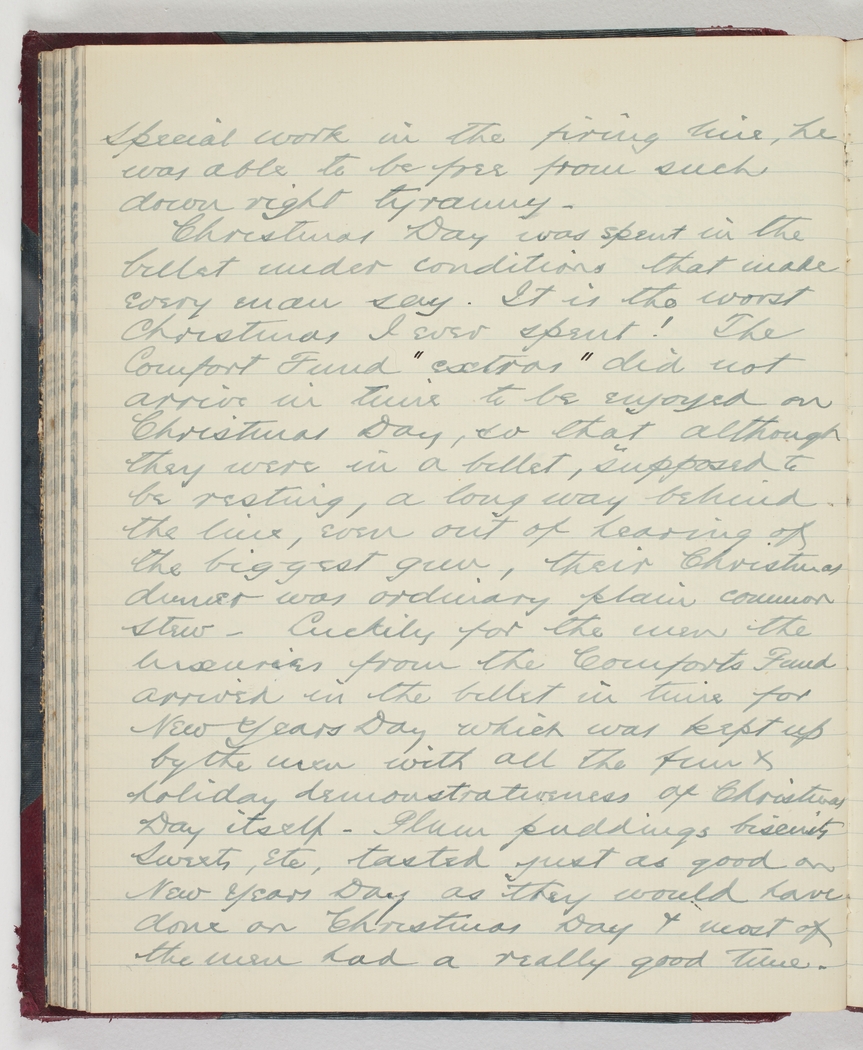 special work in the firing line, he
was able to be free from such
down right tyranny -
Christmas Day was spent in the
billet under conditions that make
every man say. It is the worst
Christmas I ever spent! The
Comfort Fund "extras" did not
arrive in time to be enjoyed on
Christmas Day, so that although
they were in a billet, "supposed to
be resting, a long way behind
the line, even out of hearing of
the biggest gun, their Christmas
dinner was ordinary plain common
stew - Luckily for the men the
luxuries from the Comforts Fund
arrived in the billet in time for
New Years Day which was kept up
by the men with all the fun &
holiday demonstrativeness of Christmas
Day itself - Plum puddings biscuits
sweets, etc, tasted just as good on
New Years Day as they would have
done on Christmas Day & most of
the men had a really good time.